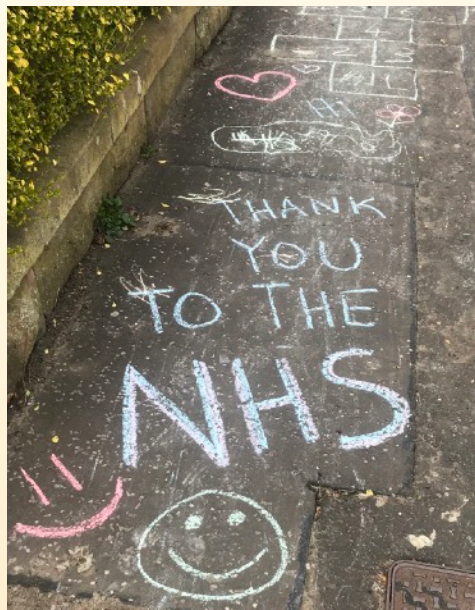 THANK
YOU
TO THE
NHS